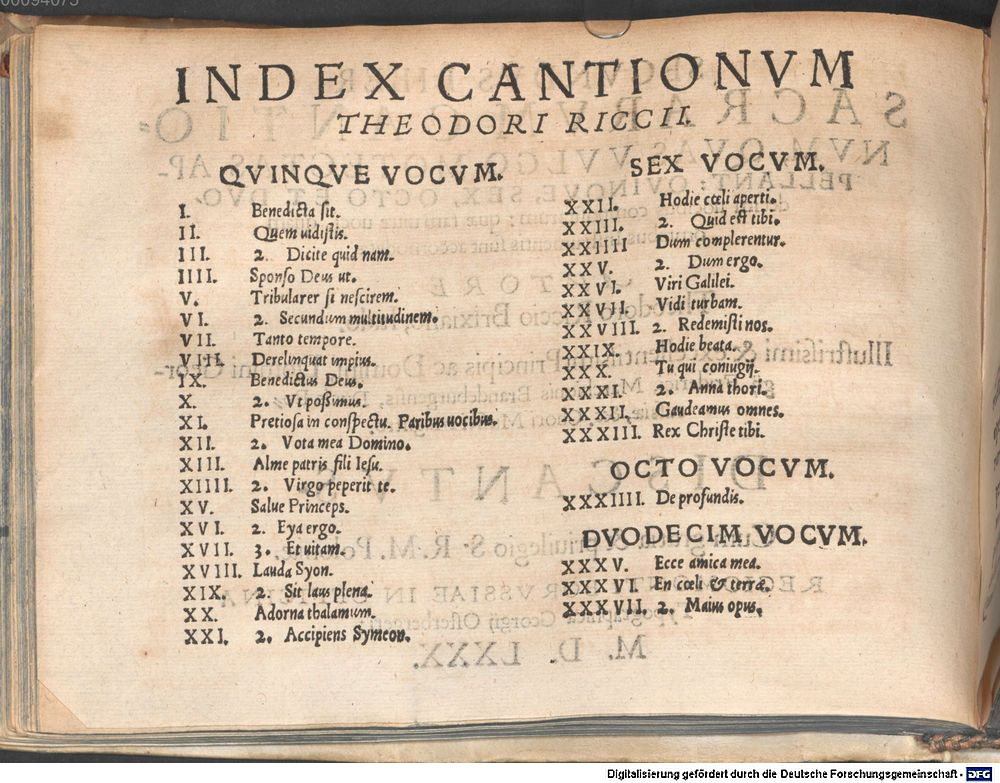 INDEX CANTIONVM
THEODORI RICCII.
QVINQVE VOCVM.
I. Benedicta sit.
II. Quem uidistis.
III. 2. Dicite quid nam.
IIII. Sponso Deus ut.
V. Tribularer si nescirem.
VI. 2. Secundum multitudinem.
VII. Tanto tempore.
VIII. Derelinquat impius.
IX. Benedictus Deus.
X. 2. Vt possimus.
XI. Pretiosa in conspectu. Paribus uocibus.
XII. 2. Vota mea Domino.
XIII. Alme patris fili Iesu.
XIIII. 2. Virgo peperit te.
XV. Salue Princeps.
XVI. 2. Eya ergo.
XVII. 3. Et uitam.
XVIII. Lauda Syon.
XIX. 2. Sit laus plena.
XX. Adorna thalamum.
XXI. 2. Accipiens Symeon.
SEX VOCVM.
XXII. Hodie cœli aperti.
XXIII. 2. Quid est tibi.
XXIIII Dum complerentur.
XXV. 2. Dum ergo.
XXVI. Viri Galilei.
XXVII. Vidi turbam.
XXVIII. 2. Redemisti nos.
XXIX. Hodie beata.
XXX. Tu qui coniugij.
XXXI. 2. Anna thori.
XXXII. Gaudeamus omnes.
XXXIII. Rex Christe tibi.
OCTO VOCVM.
XXXIIII. De profundis.
DVODECIM VOCVM.
XXXV. Ecce amica mea.
XXXVI. En cœli & terræ.
XXXVII. 2. Maius opus.
Digitalisierung gefördert durch die Deutsche Forschungsgemeinschaft - DFG